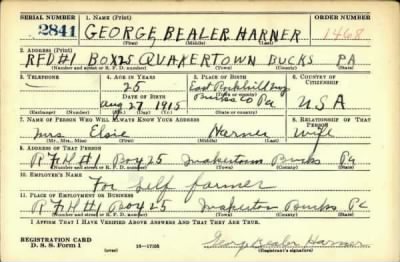 SERIAL NUMBER 1. Name (Print) ORDER NUMBER
2841 GEORGE BEALER HARNER 1468
(First) (Middle) (Last)
2. Address (Print)
RFD#1 BOX25 QUAKERTOWN BUCKS PA
(Number and street or R. F. D. number) (Town) (County) (State)
3. Telephone 4. Age in Years 5. Place of Birth 6. Country of Citizenship
25 East Rockhill Twp
Date of Birth (Town or county)
Aug 27 1915 Bucks Co Pa USA
(Exchange) (Number) (Mo.) (Day) (Yr.) (State or country)
7. Name of Person Who Will Always Know Your Address 8. Relationship of That Person
Mrs Elsie Harner wife
(Mr., Mrs., Miss) (First) (Middle) (Last)
9. Address of That Person
RFD #1 Box 25 Quakertown Bucks Pa
(Number and street or R. F. D. number) (Town) (County) (State)
10. Employer's Name
For self farmer
11. Place of Employment or Business
RFD #1 Box 25 Quakertown Bucks Pa
(Number and street or R. F. D. number) (Town) (County) (State)
I Affirm That I Have Verified Above Answers and That They Are True.
REGISTRATION CARD
D. S. S. Form 1 (over) 16—17105 George Bealer Harner
(Registrant's signature)